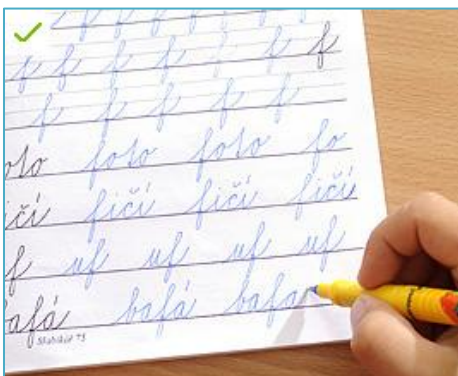 f f f f f f
f f f f f f
f f f f f
foto foto fo
ičí fičí fičí fičí
f uf uf uf uf
afá bafá bafa